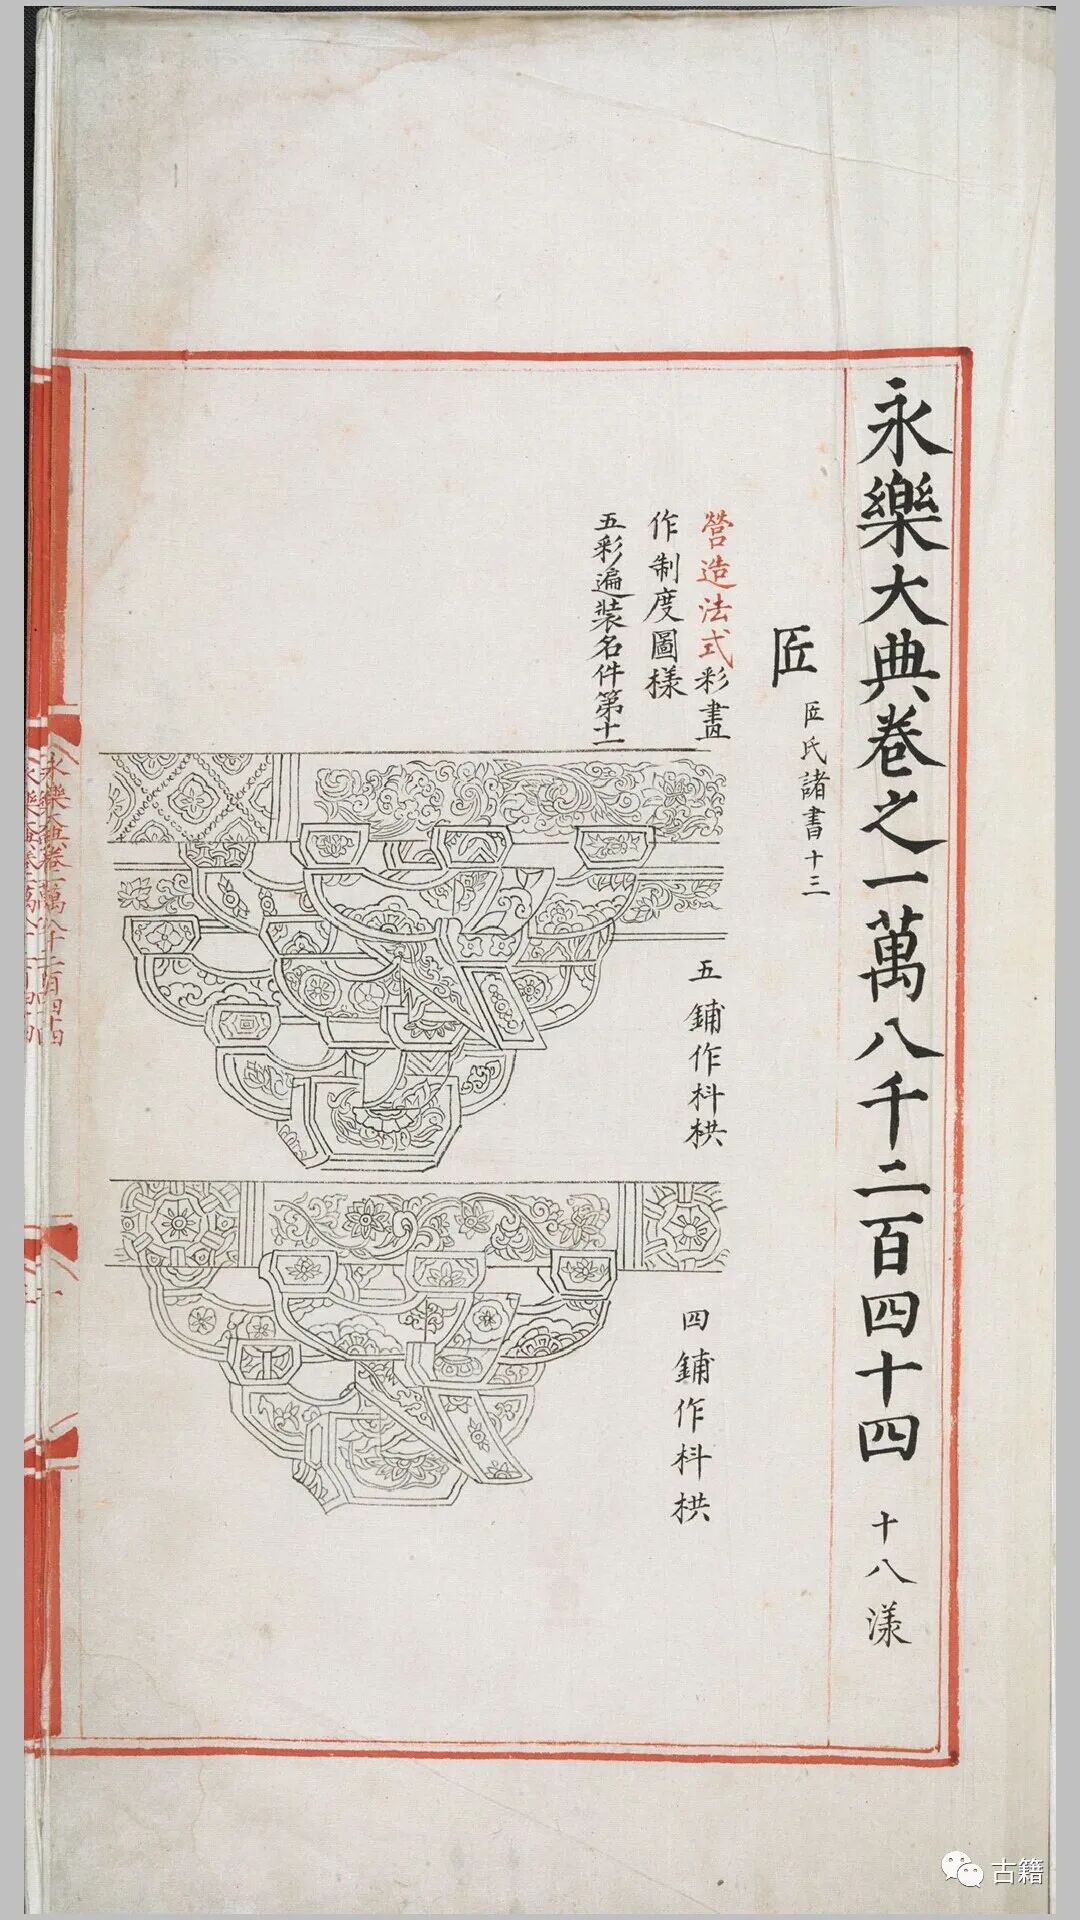 永樂大典卷之一萬八千二百四十四 十八漾
匠 匠氏諸書十三
營造法式彩畫
作制度圖樣
五彩遍裝名件第十一
五鋪作枓栱
四鋪作枓栱
古籍